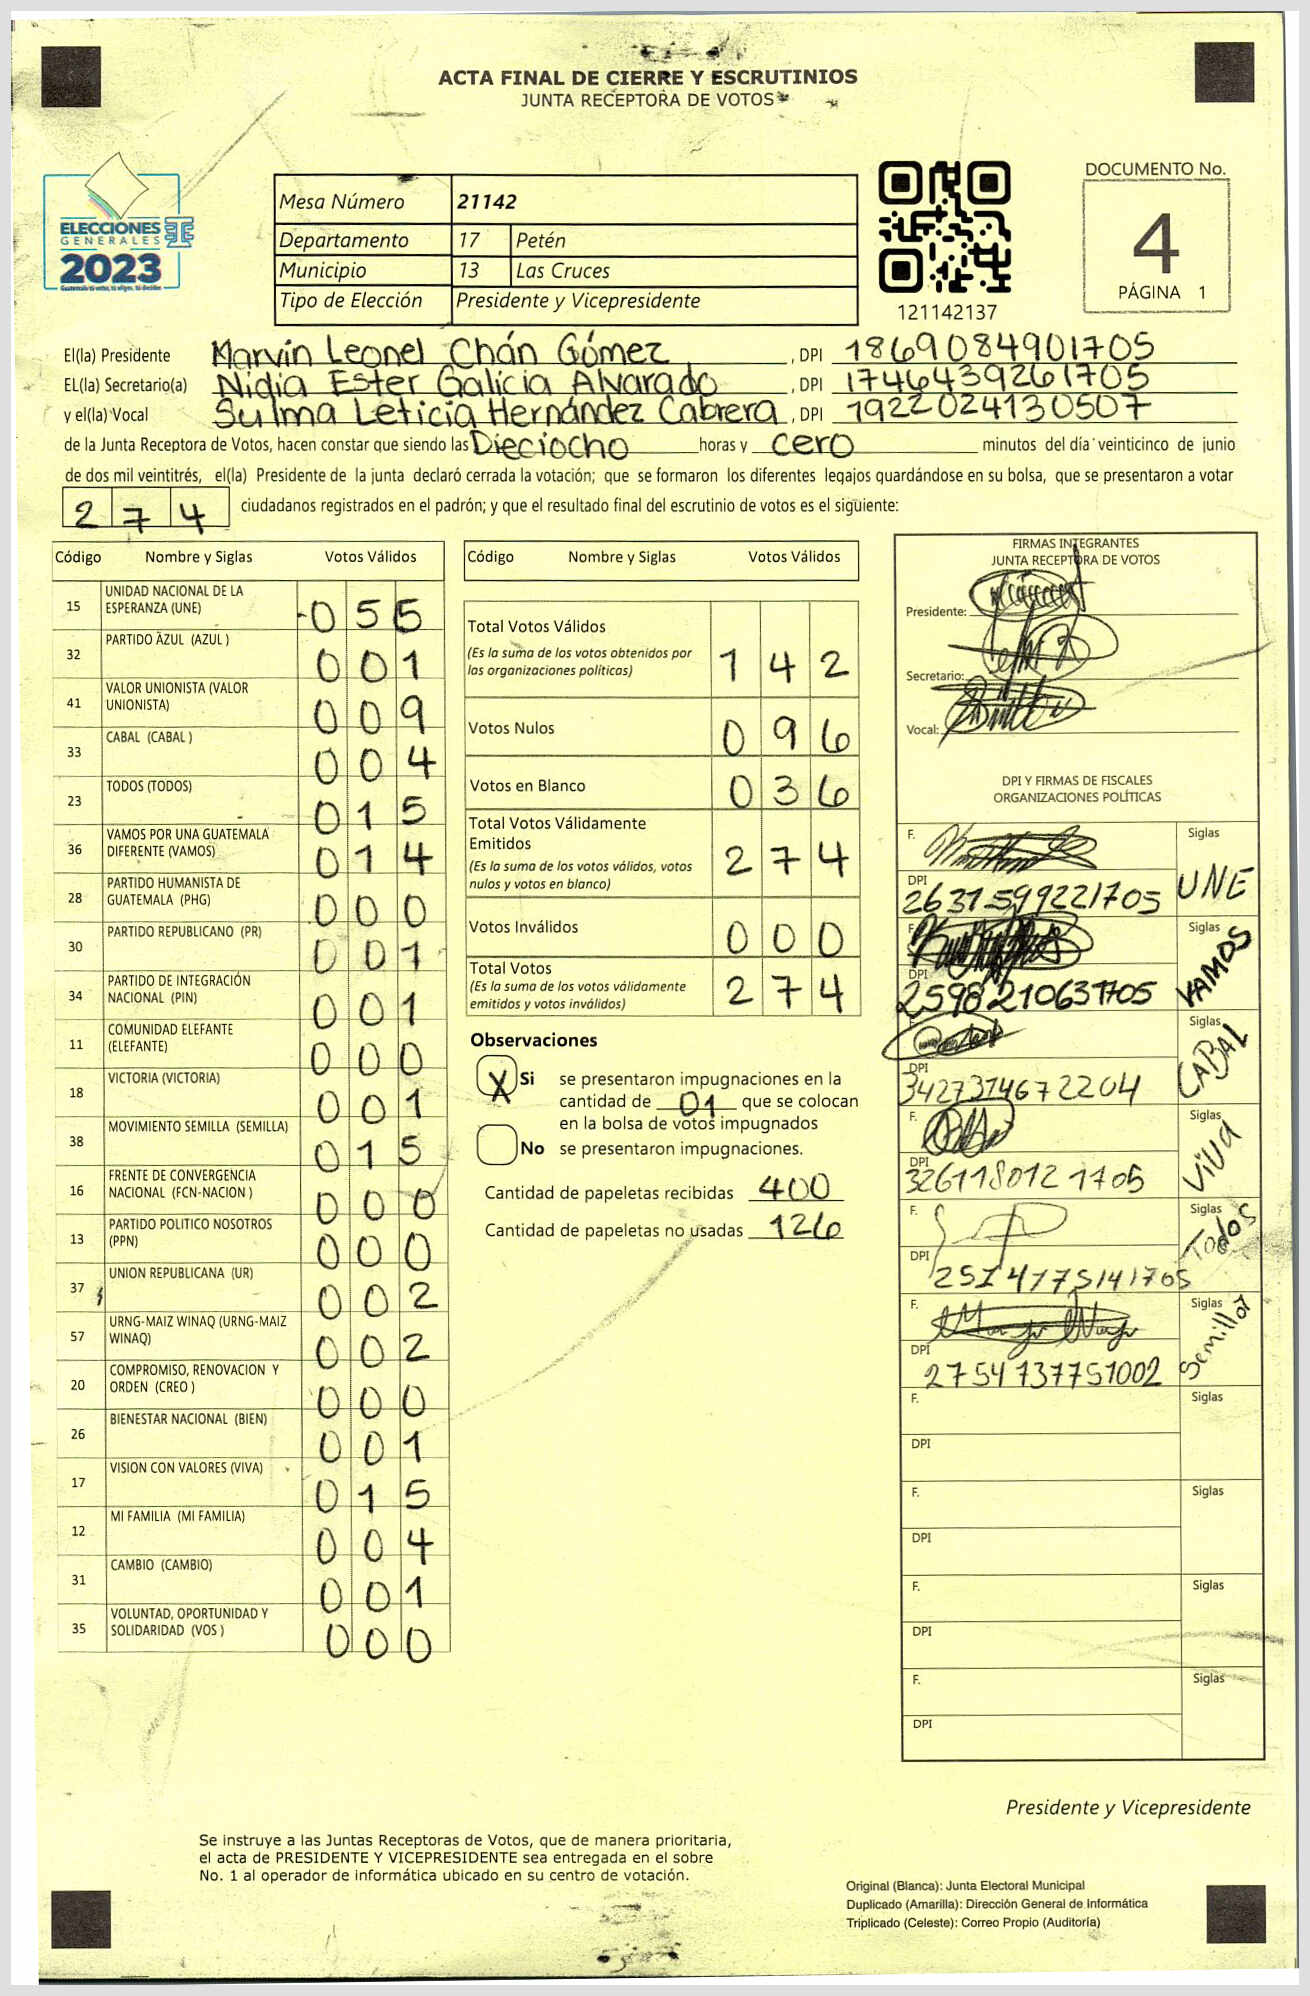 ACTA FINAL DE CIERRE Y ESCRUTINIOS
JUNTA RECEPTORA DE VOTOS
ELECCIONES
GENERALES
2023
Mesa Número 21142
Departamento 17 Petén
Municipio 13 Las Cruces
Tipo de Elección Presidente y Vicepresidente
121142137
DOCUMENTO No.
4
PÁGINA 1
El(la) Presidente Marvin Leonel Chán Gómez, DPI 1869084901705
EL(la) Secretario(a) Nidia Ester Galicia Alvarado, DPI 1746439261705
y el(la) Vocal Sulma Leticia Hernández Cabrera, DPI 1922024130507
de la Junta Receptora de Votos, hacen constar que siendo las Dieciocho horas y cero minutos del día veinticinco de junio
de dos mil veintitrés, el(la) Presidente de la junta declaró cerrada la votación; que se formaron los diferentes legajos guardándose en su bolsa, que se presentaron a votar
274 ciudadanos registrados en el padrón; y que el resultado final del escrutinio de votos es el siguiente:
Código Nombre y Siglas Votos Válidos
15 UNIDAD NACIONAL DE LA ESPERANZA (UNE) 055
32 PARTIDO AZUL (AZUL ) 001
41 VALOR UNIONISTA (VALOR UNIONISTA) 009
33 CABAL (CABAL ) 004
23 TODOS (TODOS) 015
36 VAMOS POR UNA GUATEMALA DIFERENTE (VAMOS) 014
28 PARTIDO HUMANISTA DE GUATEMALA (PHG) 000
30 PARTIDO REPUBLICANO (PR) 001
34 PARTIDO DE INTEGRACIÓN NACIONAL (PIN) 001
11 COMUNIDAD ELEFANTE (ELEFANTE) 000
18 VICTORIA (VICTORIA) 001
38 MOVIMIENTO SEMILLA (SEMILLA) 015
16 FRENTE DE CONVERGENCIA NACIONAL (FCN-NACION ) 000
13 PARTIDO POLITICO NOSOTROS (PPN) 000
37 UNION REPUBLICANA (UR) 002
57 URNG-MAIZ WINAQ (URNG-MAIZ WINAQ) 002
20 COMPROMISO, RENOVACION Y ORDEN (CREO ) 000
26 BIENESTAR NACIONAL (BIEN) 001
17 VISION CON VALORES (VIVA) 015
12 MI FAMILIA (MI FAMILIA) 004
31 CAMBIO (CAMBIO) 001
35 VOLUNTAD, OPORTUNIDAD Y SOLIDARIDAD (VOS ) 000
Código Nombre y Siglas Votos Válidos
Total Votos Válidos 142
(Es la suma de los votos obtenidos por
las organizaciones políticas)
Votos Nulos 096
Votos en Blanco 036
Total Votos Válidamente
Emitidos 274
(Es la suma de los votos válidos, votos
nulos y votos en blanco)
Votos Inválidos 000
Total Votos 274
(Es la suma de los votos válidamente
emitidos y votos inválidos)
Observaciones
X Si se presentaron impugnaciones en la
cantidad de 01 que se colocan
en la bolsa de votos impugnados
No se presentaron impugnaciones.
Cantidad de papeletas recibidas 400
Cantidad de papeletas no usadas 126
FIRMAS INTEGRANTES
JUNTA RECEPTORA DE VOTOS
Presidente:
Secretario:
Vocal:
DPI Y FIRMAS DE FISCALES
ORGANIZACIONES POLÍTICAS
F. Siglas UNE
DPI 2631599221705
F. Siglas VAMOS
DPI 2598210631705
F. Siglas CABAL
DPI 3427314672204
F. Siglas VIVA
DPI 3261180121705
F. Siglas Todos
DPI
F. Siglas Semilla
DPI 2754737751002
F. Siglas
DPI
F. Siglas
DPI
F. Siglas
DPI
F. Siglas
DPI
Presidente y Vicepresidente
Se instruye a las Juntas Receptoras de Votos, que de manera prioritaria,
el acta de PRESIDENTE Y VICEPRESIDENTE sea entregada en el sobre
No. 1 al operador de informática ubicado en su centro de votación.
Original (Blanca): Junta Electoral Municipal
Duplicado (Amarilla): Dirección General de Informática
Triplicado (Celeste): Correo Propio (Auditoría)